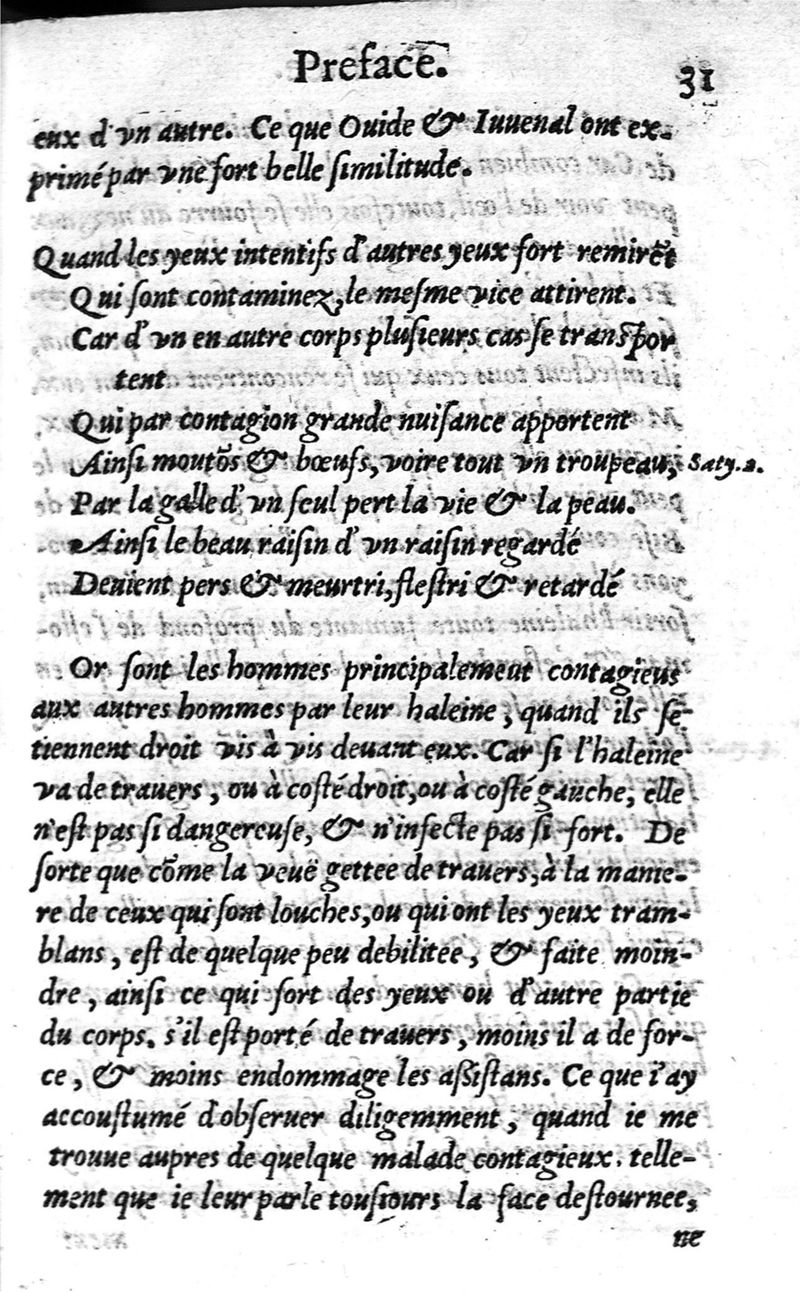 Preface.
31
eux d'vn autre. Ce que Ouide & Iuuenal ont ex-
primé par vne fort belle ſimilitude.
Quand les yeux intentifs d'autres yeux fort remirẽt
Qui ſont contaminez, le meſme vice attirent.
Car d'vn en autre corps pluſieurs cas ſe tranſpor
tent
Qui par contagion grande nuiſance apportent
Ainſi moutõs & bœufs, voire tout vn troupeau, Saty. 2.
Par la galle d'vn ſeul pert la vie & la peau.
Ainſi le beau raiſin d'vn raiſin regardé
Deuient pers & meurtri, fleſtri & retardé
Or ſont les hommes principalement contagieus
aux autres hommes par leur haleine, quand ils ſe
tiennent droit vis à vis deuant eux. Car ſi l'haleine
va de trauers, ou à coſté droit, ou à coſté gauche, elle
n'eſt pas ſi dangereuſe, & n'infecte pas ſi fort. De
ſorte que cõme la veuë gettee de trauers, à la manie-
re de ceux qui ſont louches, ou qui ont les yeux tram-
blans, eſt de quelque peu debilitee, & faite moin-
dre, ainſi ce qui ſort des yeux ou d'autre partie
du corps. s'il eſt porté de trauers, moins il a de for-
ce, & moins endommage les aſsiſtans. Ce que i'ay
accouſtumé d'obſeruer diligemment, quand ie me
trouue aupres de quelque malade contagieux. telle-
ment que ie leur parle touſiours la face deſtournee,
ne